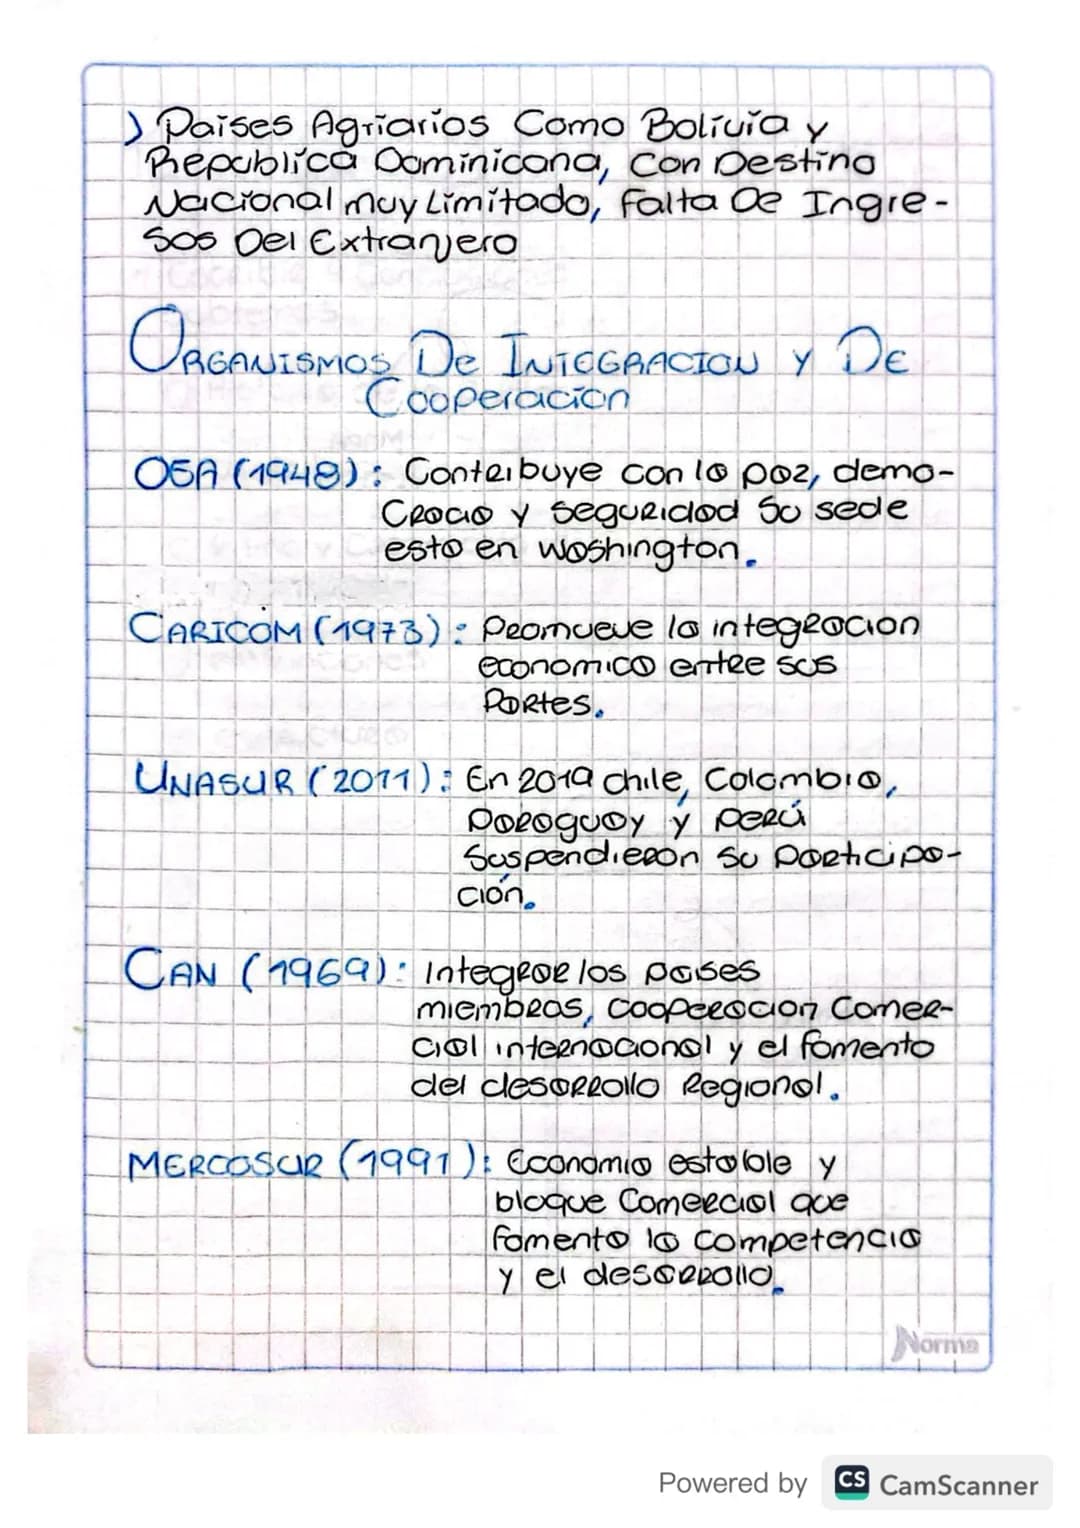 ) Paises Agriarios Como Bolivia y
Republica Dominicana, Con Destino
Nacional muy Limitado, Falta De Ingre-
sos Del Extranjero
ORGANISMOS De INTEGRACION Y DE
Cooperacion
OEA (1948): Contribuye con la paz, demo-
cracia y seguridad Su sede
esta en washington.
CARICOM (1973): Promueve la integracion
economica entre sus
Partes.
UNASUR (2011): En 2019 chile, Colombia,
Paraguay y perú
Suspendieron su participa-
ción.
CAN (1969): Integrar los paises
miembros, cooperacion Comer-
cial internacional y el fomento
del desarrollo Regional.
MERCOSUR (1991): Economia estable y
bloque Comercial que
fomenta la competencia
y el desarrollo.
Norma
Powered by CS CamScanner